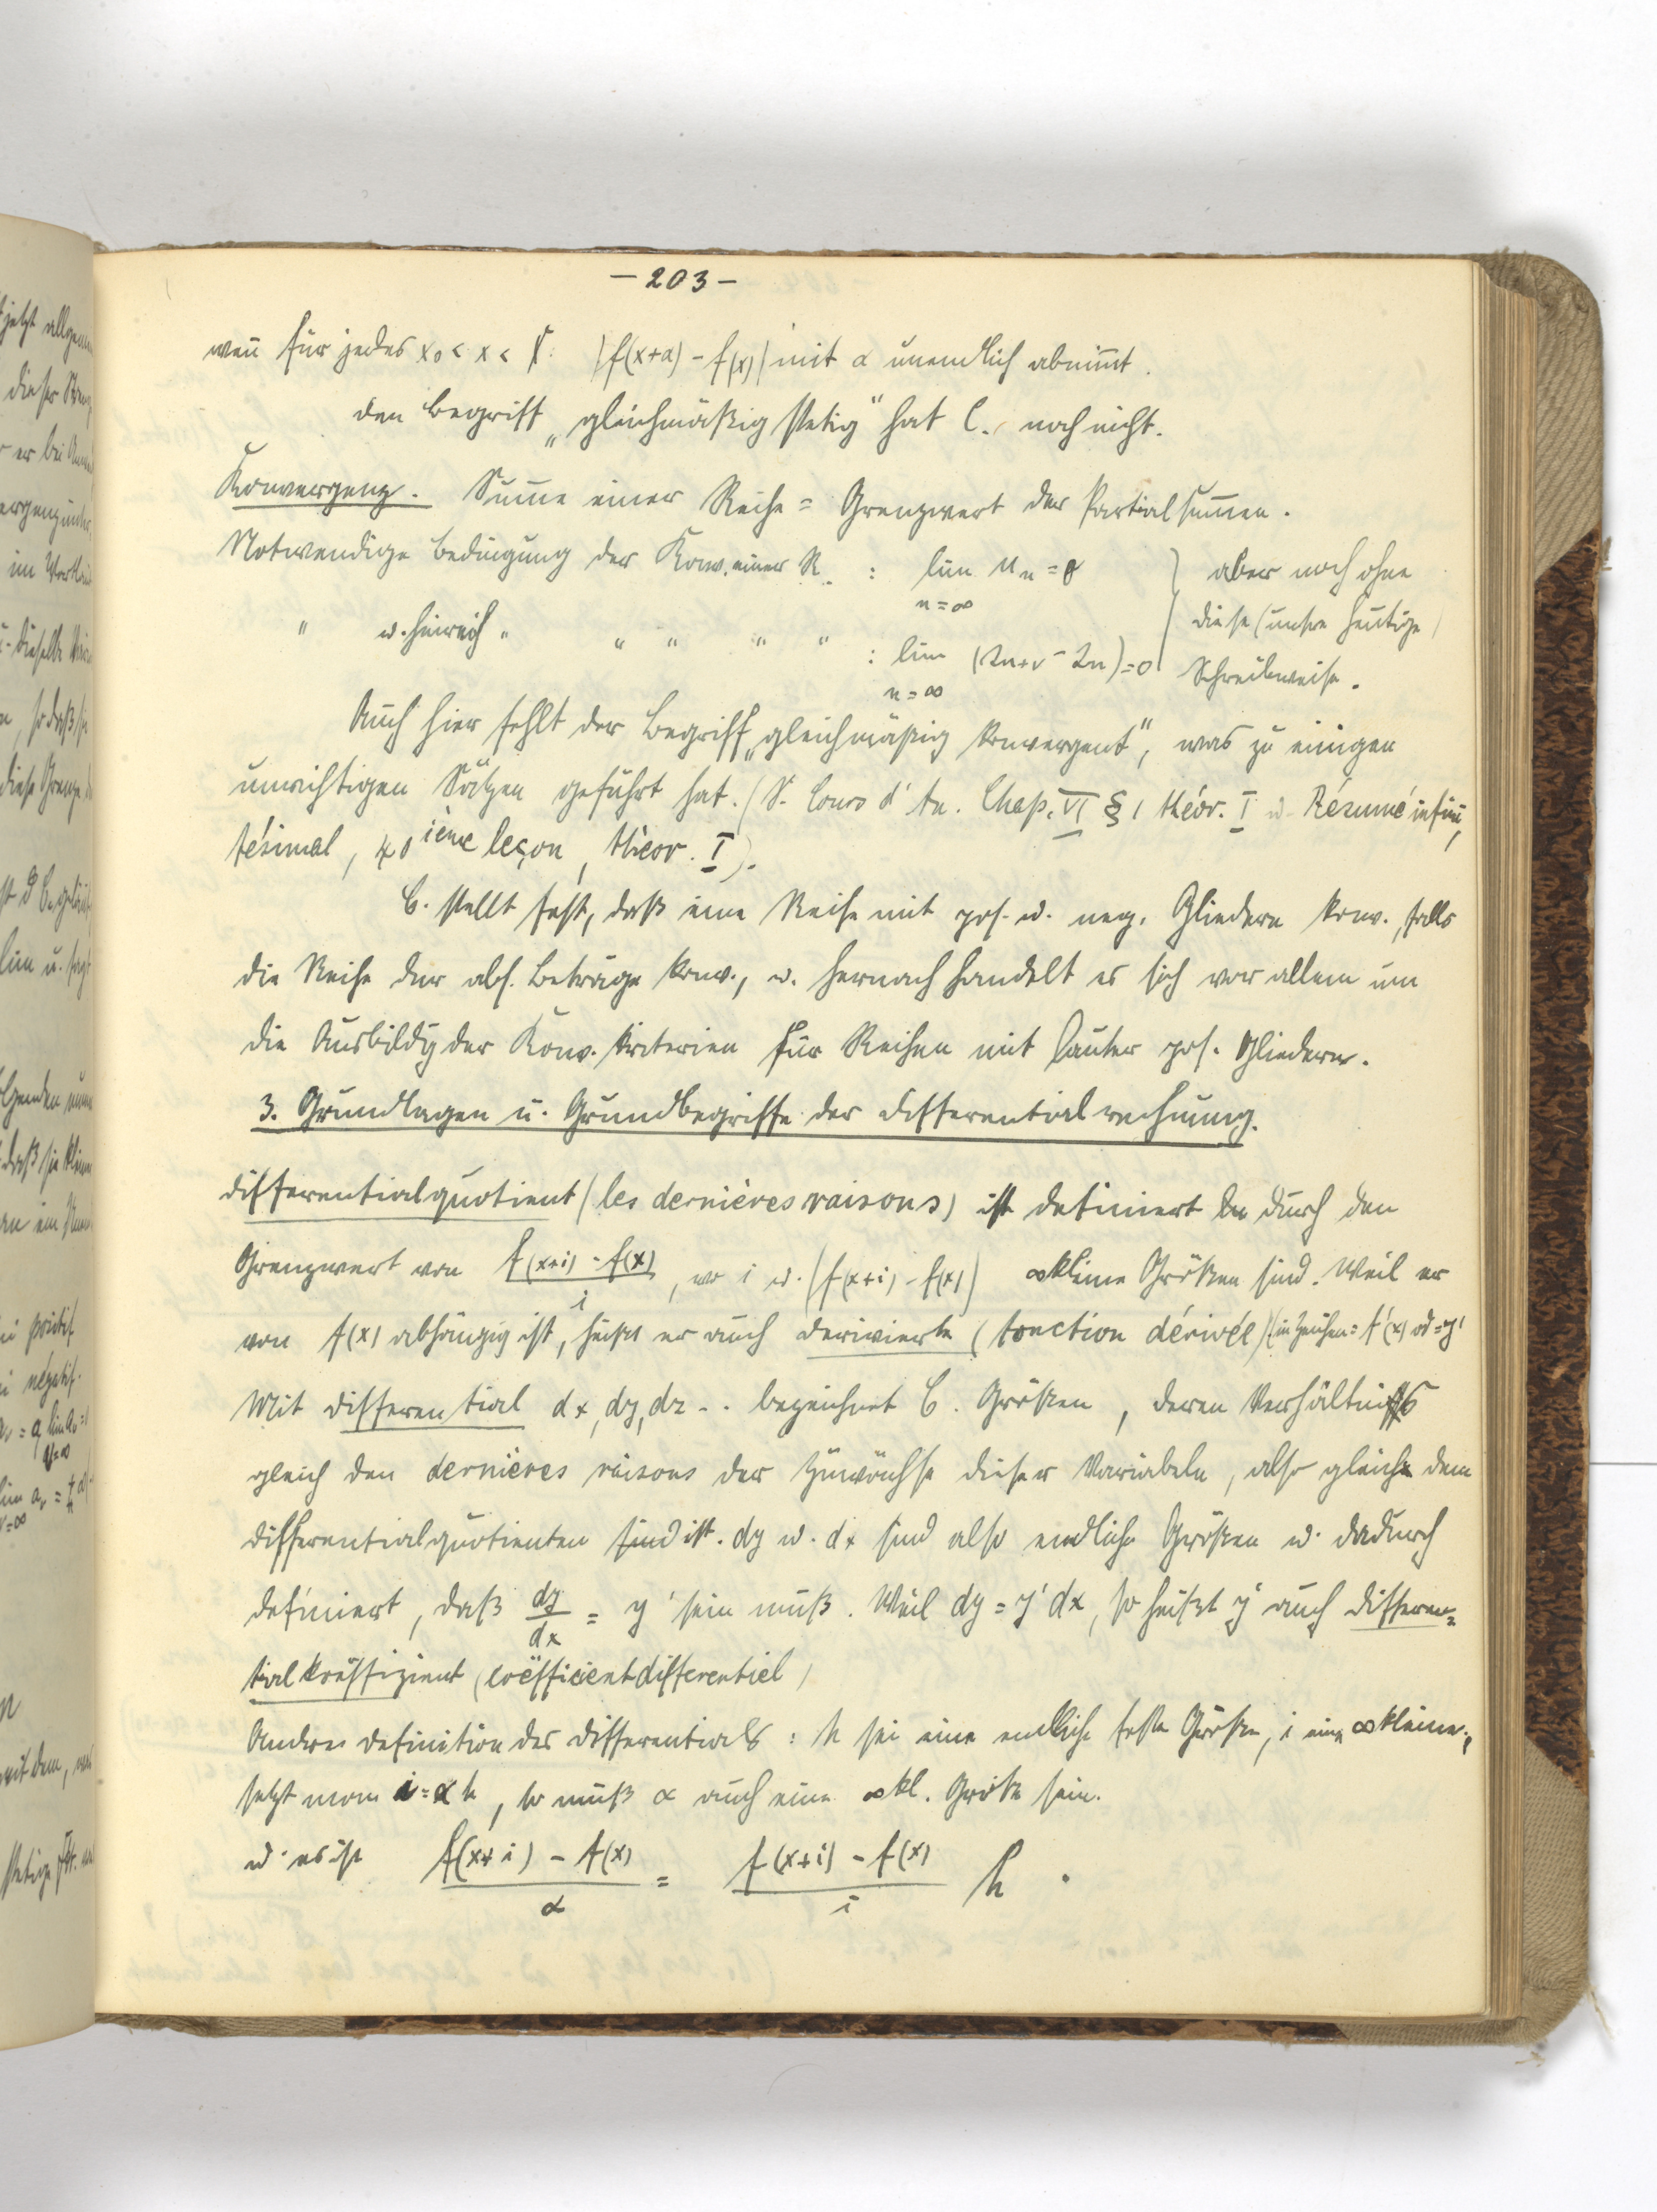 – 203 –
wenn für jedes x₀ < x < X: |f(x+α) – f(x)| mit α unendlich abnimmt.
Den Begriff „gleichmäßig stetig“ hat C. noch nicht.
Konvergenz. Summe einer Reihe = Grenzwert der Partialsummen.
Notwendige Bedingung der Konv. einer R. : lim uₙ = 0 } aber noch ohne
n=∞
" u. hinreich " " " " " : lim (sₙ₊ᵥ – sₙ) = 0 diese (unsre heutige)
n=∞ Schreibweise.
Auch hier fehlt der Begriff „gleichmäßig konvergent“, was zu einigen
unrichtigen Sätzen geführt hat. (S. Cours d'An. Chap. VI § 1 théor. I u. Résumé infini,
tésimal, 40ième leçon, théor. I).
C. stellt fest, daß eine Reihe mit pos. u. neg. Gliedern konv., falls
die Reihe der abs. Beträge konv., u. hernach handelt es sich vor allem um
die Ausbildg der Konv. kriterien für Reihen mit lauter pos. Gliedern.
3. Grundlagen u. Grundbegriffe der Differentialrechnung.
Differentialquotient (les dernières raisons) ist definiert durch den
Grenzwert von f(x+i) – f(x) / i, wo i u. (f(x+i) – f(x)) ∞ kleine Größen sind. Weil er
von f(x) abhängig ist, heißt er auch Derivierte (fonction dérivée) (in Zeichen = f'(x) od = y'
Mit Differential dx, dy, dz .. bezeichnet C. Größen, deren Verhältnis
gleich den dernières raisons der Zuwächse dieser Variabeln, also gleich dem
Differentialquotienten sind ist. dy u. dx sind also endliche Größen u. dadurch
definiert, daß dy/dx = y' sein muß. Weil dy = y' dx, so heißt y' auch Differen=
tialkoëffizient (coëfficient differentiel)
Andere Definition des Differentials: h sei eine endliche feste Größe, i eine ∞ kleine;
setzt man i = α h, so muß α auch eine ∞ kl. Größe sein.
u. es ist f(x+i) – f(x) / α = f(x+i) – f(x) / i h .